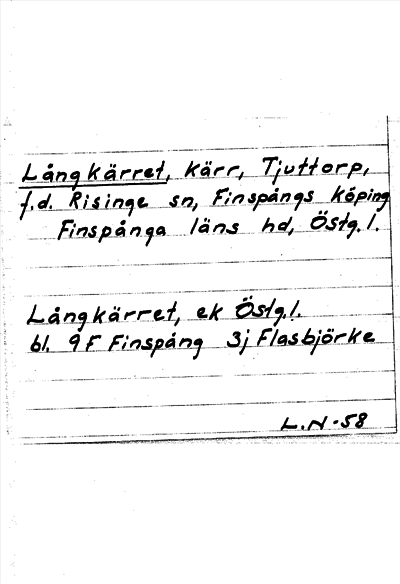 Långkärret, kärr, Tjuttorp,
f.d. Risinge sn, Finspångs köping
Finspånga läns hd, Östg.l.
Långkärret, ek Östg.l.
bl. 9F Finspång 3j Flasbjörke
L.N-58